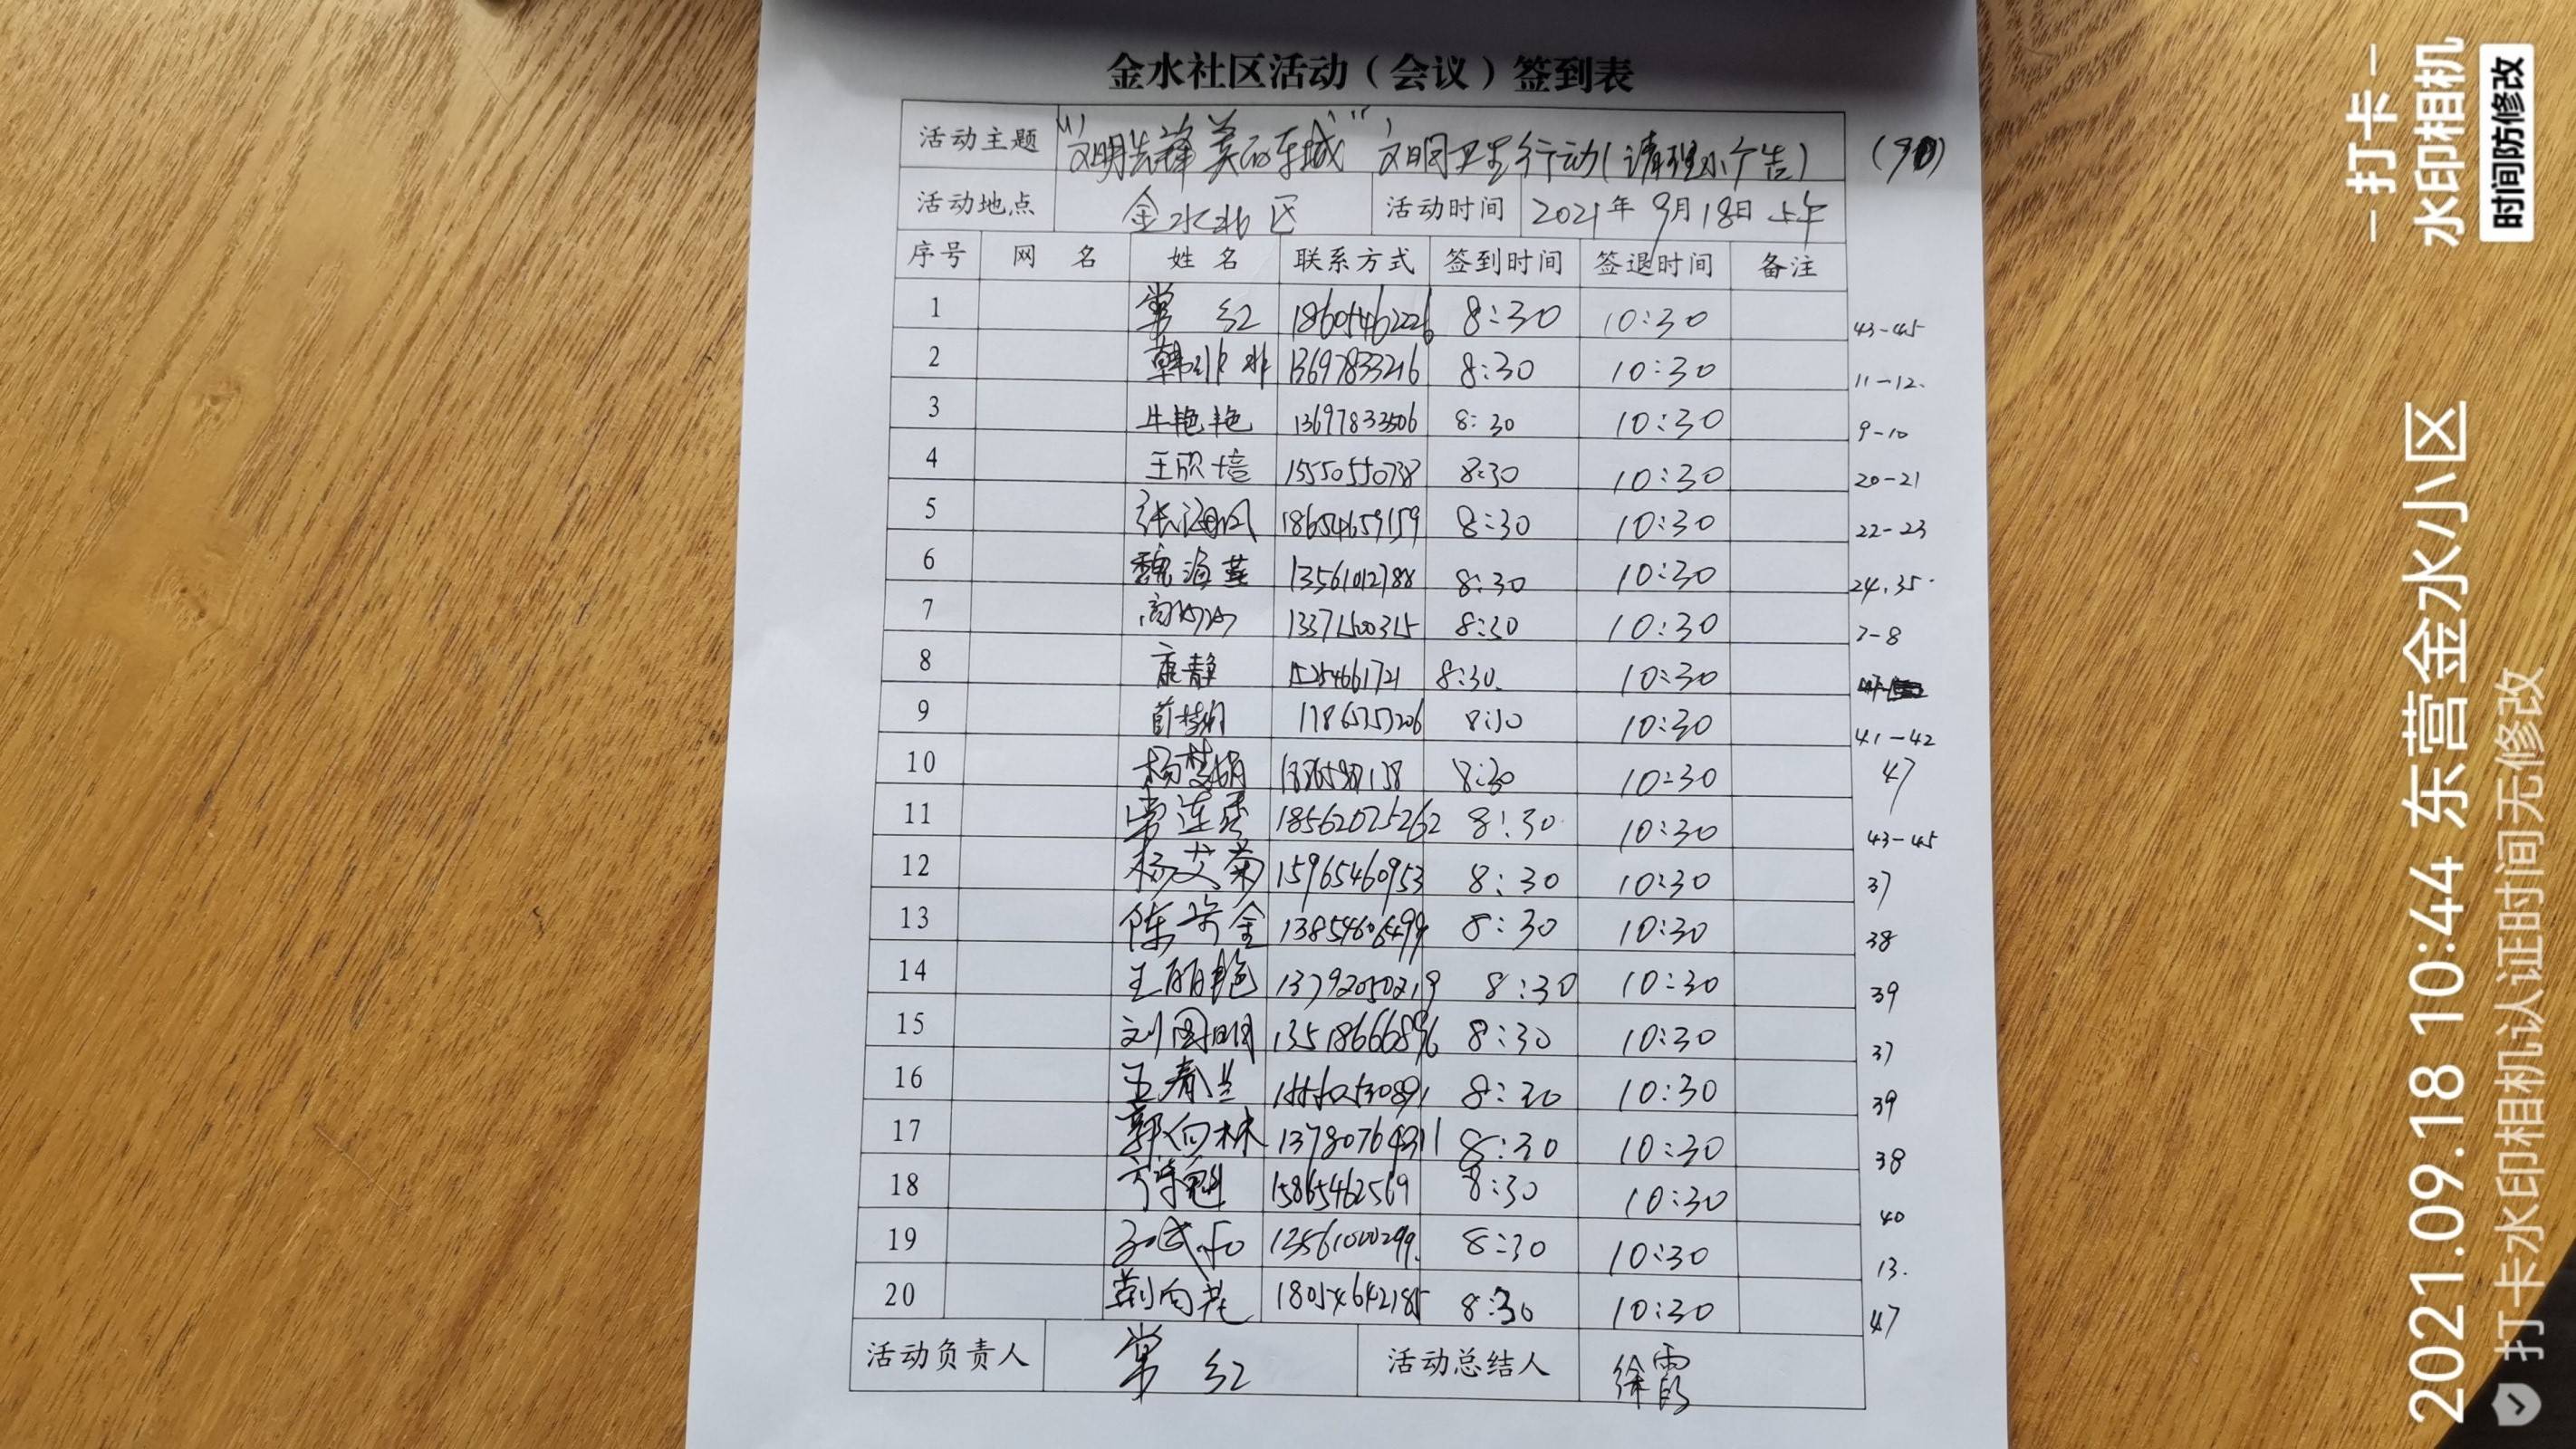 金水社区活动（会议）签到表
活动主题 "文明先锋 美丽东城" 文明卫生行动(清理小广告) (90)
活动地点 金水北区 活动时间 2021年9月18日上午
序号 网 名 姓 名 联系方式 签到时间 签退时间 备注
1 常 红 18605462226 8:30 10:30 43-45
2 韩 13697833216 8:30 10:30 11-12.
3 牛艳艳 13697833506 8:30 10:30 9-10
4 王欣培 15550550738 8:30 10:30 20-21
5 张海凤 18654659159 8:30 10:30 22-23
6 魏海燕 13561012788 8:30 10:30 24.35.
7 13371500315 8:30 10:30 7-8
8 康静 15254661721 8:30. 10:30
9 8:30 10:30 41-42
10 杨梦娟 8:30 10:30 47
11 常连香 18562075262 8:30 10:30 43-45
12 杨艾菊 15965460953 8:30 10:30 37
13 陈 金 13854606499 8:30 10:30 38
14 王丽艳 13792050219 8:30 10:30 39
15 刘国明 13518666896 8:30 10:30 37
16 王春兰 15550530891 8:30 10:30 39
17 郭向林 13780764311 8:30 10:30 38
18 15865462569 8:30 10:30 40
19 13561000299. 8:30 10:30 13.
20 荆向花 18054642185 8:30 10:30 47
活动负责人 常 红 活动总结人 徐霞
-打卡-
水印相机
时间防修改
2021.09.18 10:44 东营金水小区
打卡水印相机认证时间无修改